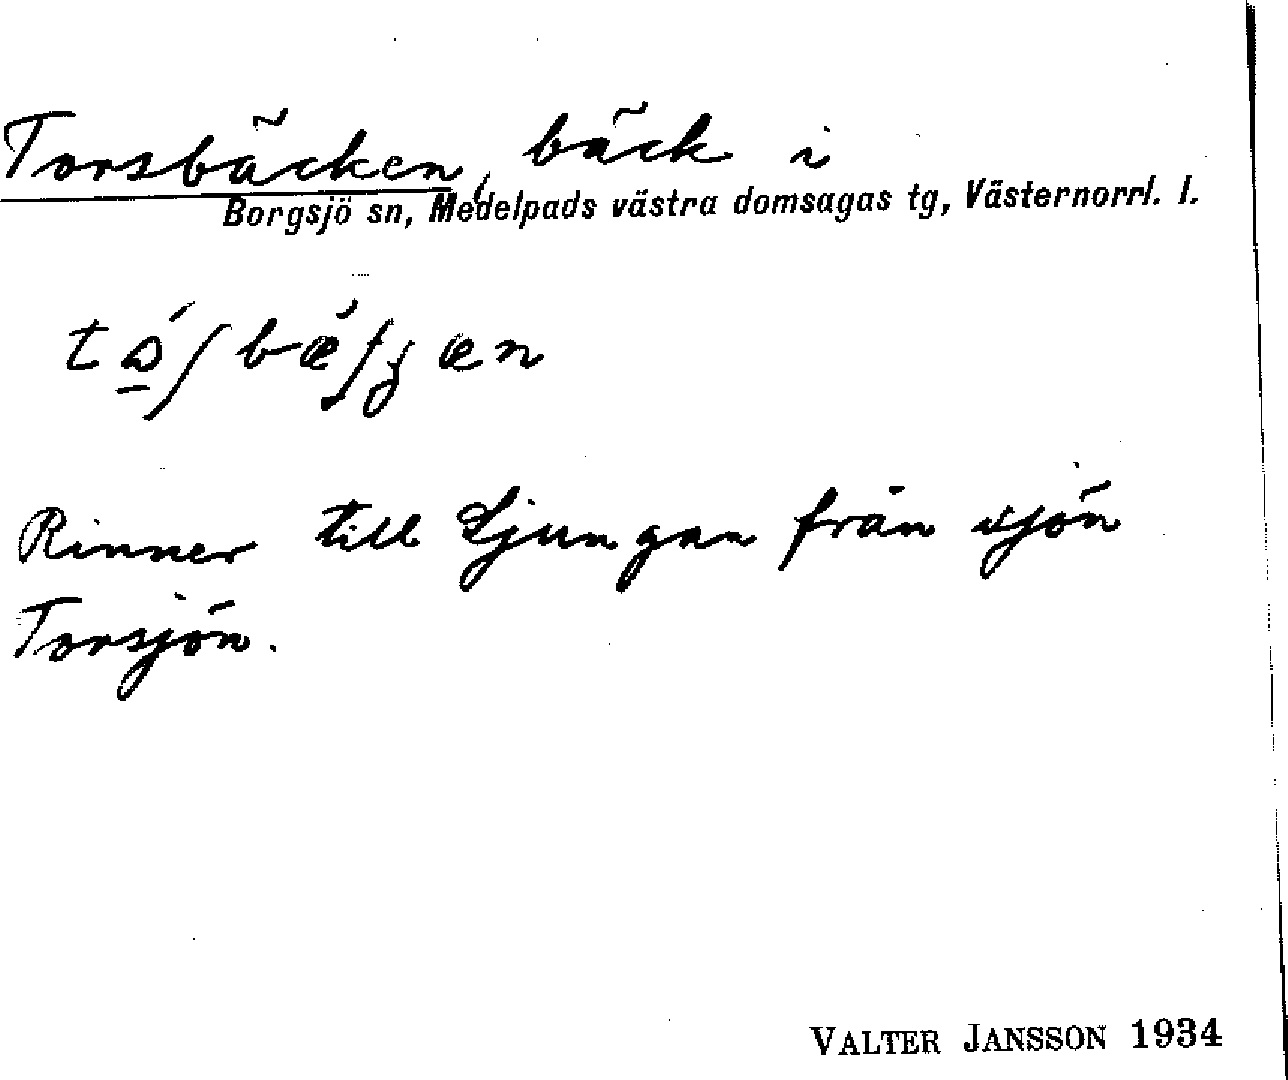 Torsbäcken, bäck i
Borgsjö sn, Medelpads västra domsagas tg, Västernorrl. l.
Rinner till Ljungan från sjön
Torsjön.
VALTER JANSSON 1934